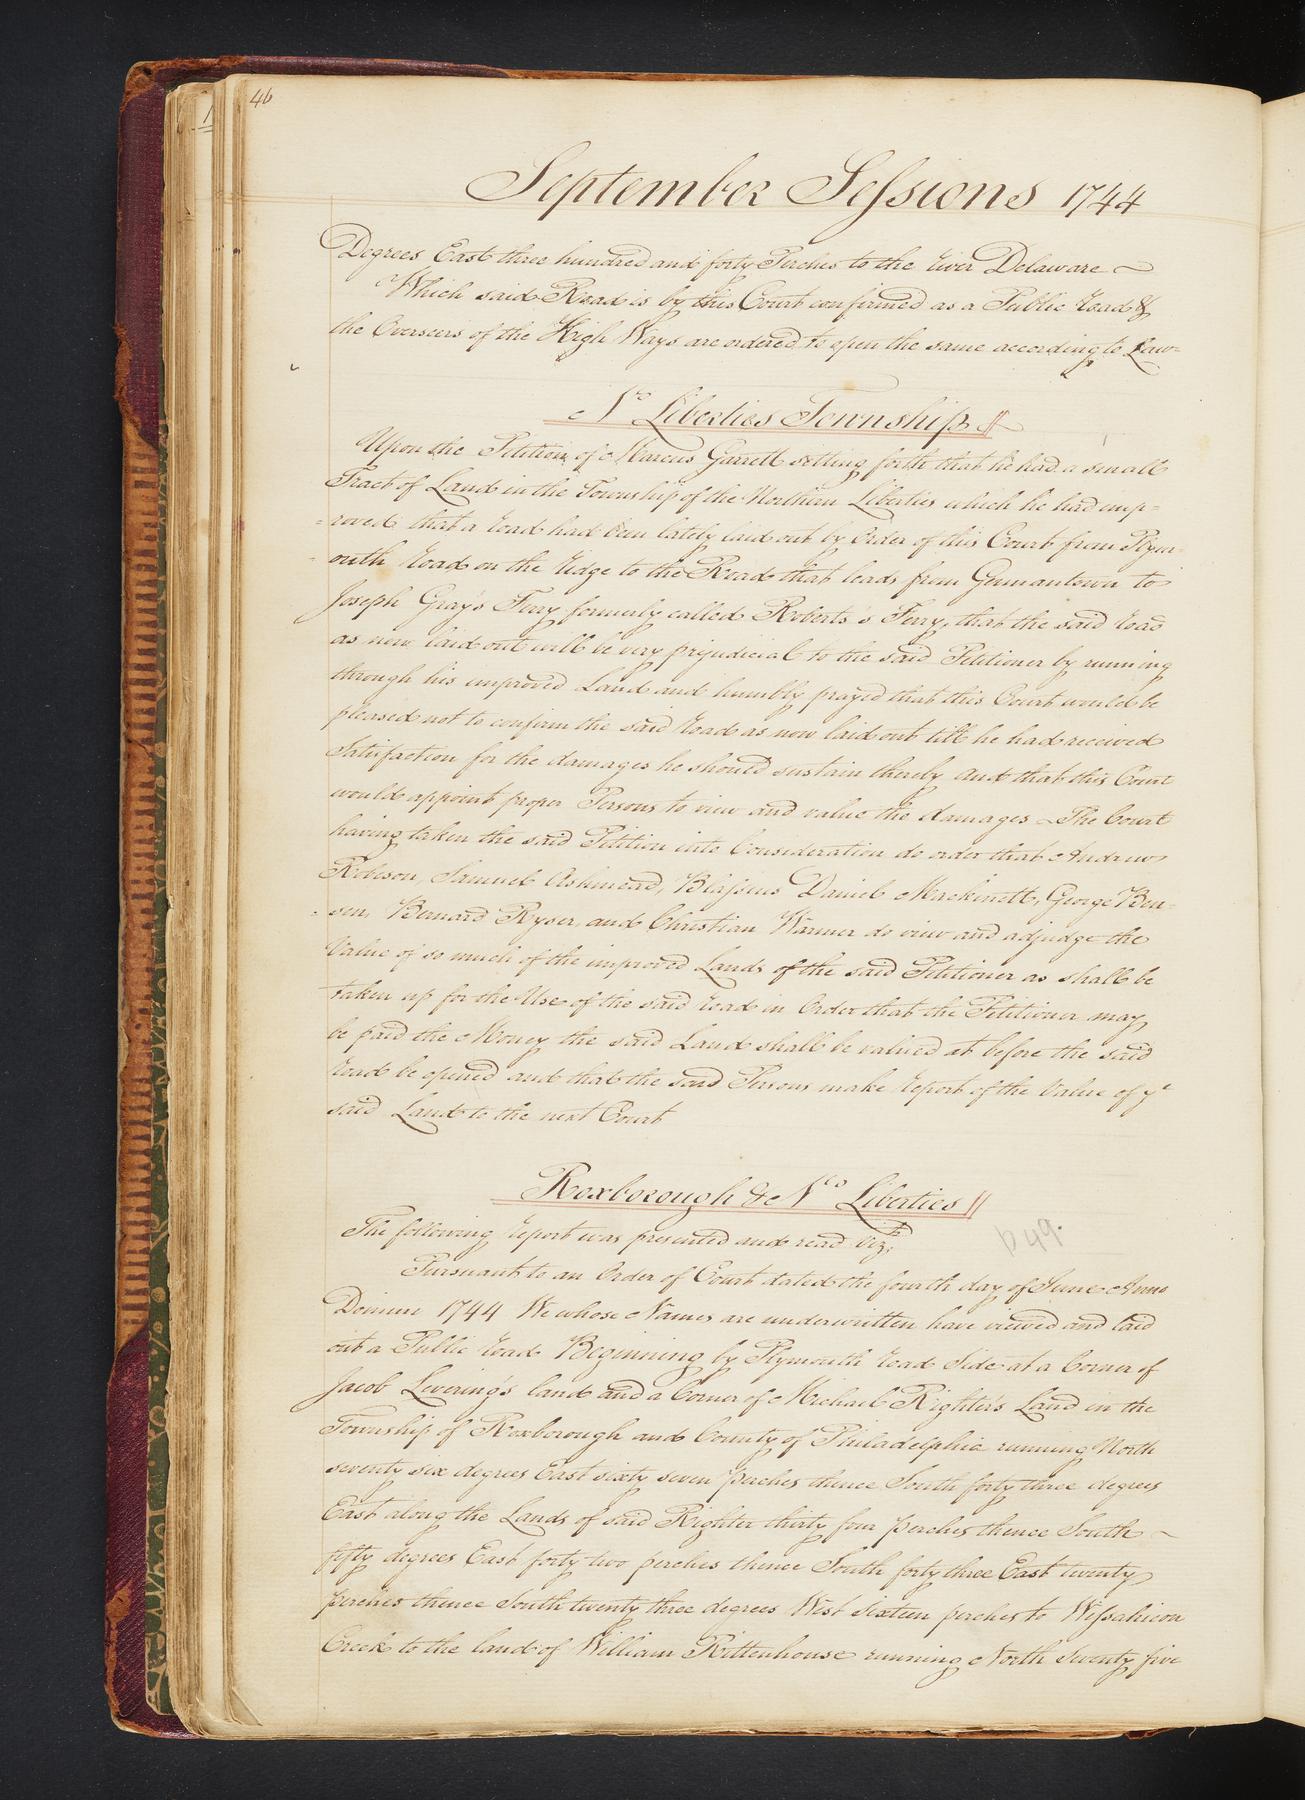 46
September Sessions 1744
Degrees East three hundred and forty Perches to the river Delaware
Which said Road is by this Court confirmed as a Public road &
the Overseers of the High Ways are ordered to open the same according to Law
No Liberties Township
Upon the Petition of Marcus Garrett setting forth that he had a small
Tract of Land in the Township of the Northern Liberties which he had imp=
=roved that a road had been lately laid out by Order of this Court from Plym
outh road on the ridge to the Road that leads from Germantown to
Joseph Gray's Ferry formerly called Roberts's Ferry, that the said road
as now laid out will be very prejudicial to the said Petitioner by running
through his improved Land and humbly prayed that this Court would be
pleased not to confirm the said road as now laid out till he had received
Satisfaction for the damages he should sustain thereby and that this Court
would appoint proper Persons to view and value the damages The Court
having taken the said Petition into Consideration do order that Andrew
Robeson, Samuel Ashmead, Blassius Daniel Mackinett, George Ben=
=sen, Bernard Ryser, and Christian Warner do view and adjudge the
Value of so much of the improved Lands of the said Petitioner as shall be
taken up for the Use of the said road in Order that the Petitioner may
be paid the Money the said Land shall be valued at before the said
road be opened and that the said Persons make report of the Value of ye
said Land to the next Court
Roxborough & No Liberties
The following report was presented and read Viz;
p 49.
Pursuant to an Order of Court dated the fourth day of June Anno
Domini 1744 We whose Names are underwritten have viewed and laid
out a Public road Beginning by Plymouth road Side at a Corner of
Jacob Levering's land and a Corner of Michael Righter's Land in the
Township of Roxborough and County of Philadelphia running North
seventy six degrees East sixty seven perches thence South forty three degrees
East along the Lands of said Righter thirty four perches thence South
fifty degrees East forty two perches thence South forty three East twenty
perches thence South twenty three degrees West sixteen perches to Wissahicon
Creek to the land of William Rittenhouse running North Seventy five